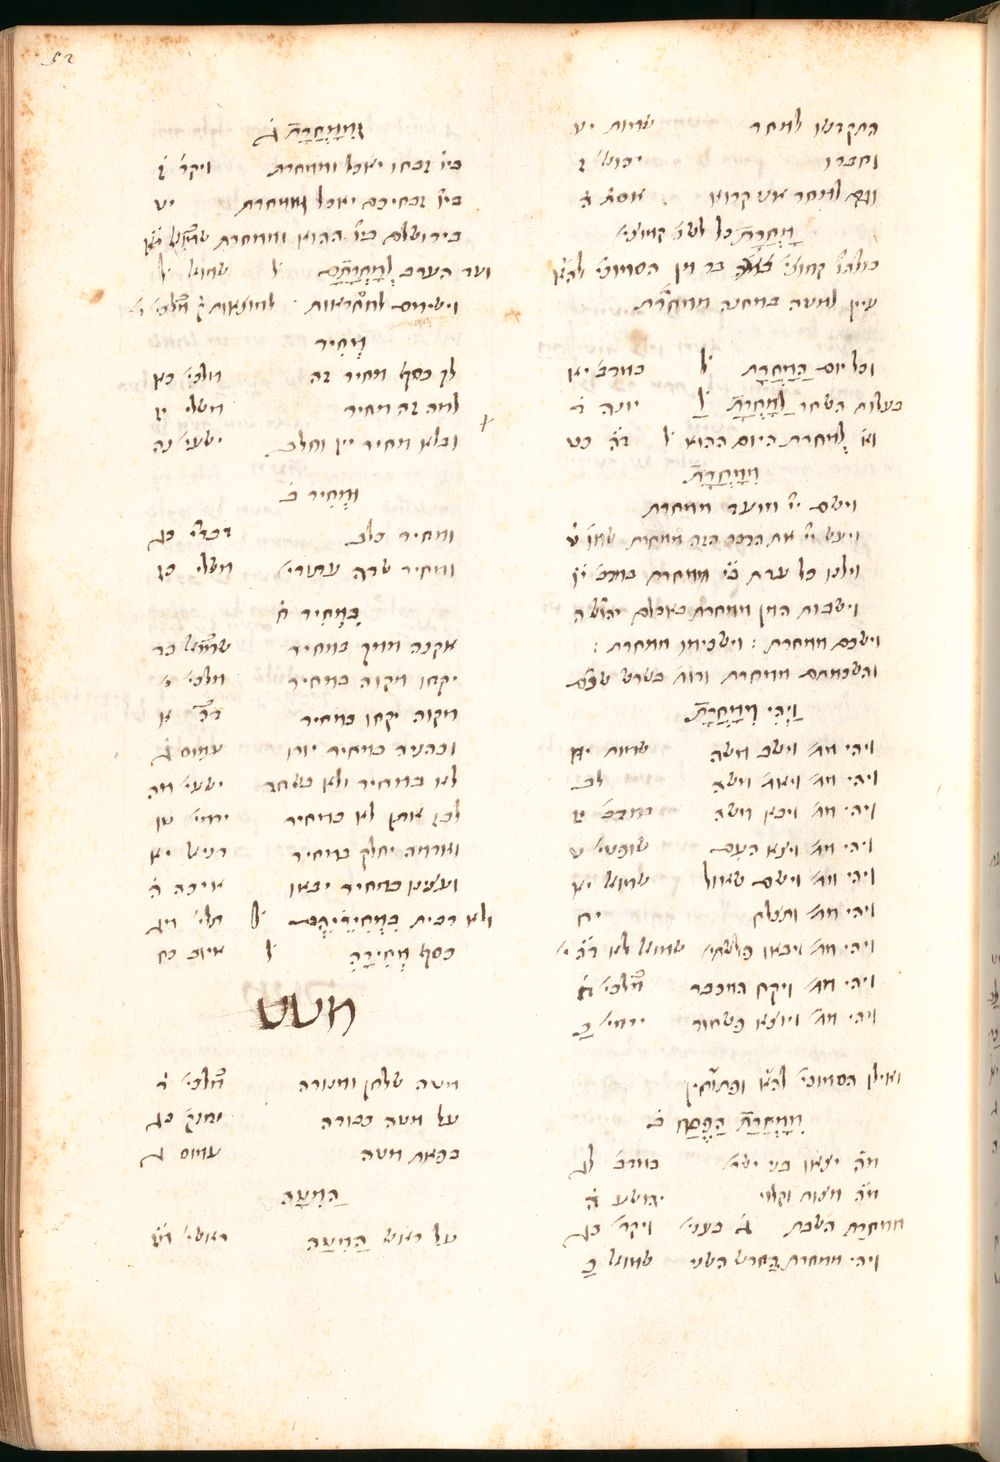 52
התקדשו למחר שמות יט
וחברו יהוש׳ ז
וגם למחר אני קרוא אסת׳ ה
מָחֳרָת כל לשׄ קמוצי׳
עיין למטה במחנה ממחרת
וכל יום הַמָּחֳרָת ל׳ במדב׳ יא
בעלות השחר לַמָּחֳרָת ל׳ יונה ד
למחרת היום ההוא ל׳ דה כט
מִמָּחֳרָת
וישם יי׳ מועד ממחרת
ויעש יי׳ את הדבר הזה ממחרת שמו׳ ט
וילנו כל עדת בי׳ ממחרת במדב׳ יז
וישבות המן ממחרת באכלם יהוש׳ ה
וישכם ממחרת : וישכימו ממחרת :
והשכמתם ממחרת
וַיְהִי מִמָּחֳרָת
ויהי ממ׳ וישב משה שמות יח
ויהי ממ׳ ויאמ׳ משה לב
ויהי ממ׳ ויבא משה במדב׳ יז
ויהי ממ׳ ויצא העם שופטי׳ ט
ויהי ממ׳ וישם שאול שמוא׳ יא
ויהי ממ׳ ותצלח יח
ויהי ממ׳ ויבאו פלשתי׳ שמוא׳ לא דה׳ י׳
ויהי ממ׳ ויקח המכבר מלכי׳ ח
ויהי ממ׳ ויוצא פשחור ירמי׳ כ
ואילן הסמוכי׳ להׄ ופתוחין
מִמָּחֳרַת הַפֶּסַח ב
ממ׳ יצאו בני ישר׳ במדב׳ לג
ממ׳ מצות וקלוי יהושע ה
ממחרת השבת ג בעני׳ ויקר׳ כג
ויהי ממחרת החדש השני שמוא׳ כ
וּמִמָּחֳרָת ג
ביו׳ זבחו יאכל וממחרת ויקר׳ ז
ביו׳ זבחיכם יאכל וממחרת יט
בירושלם ביו׳ ההוא וממחרת
ועד הערב לְמָחֳרָתָם ל׳ שמוא׳ ל׳
וישימם למחראות למוצאות ק׳ מלכי׳ י׳
מְחִיר
לך כסף מחיר זה מלכי׳ כא
למה זה מחיר משלי יז
ובלא מחיר יין וחלב ישעי׳ נה
וּמְחִיר ב
ומחיר כלב דברי׳ כג
ומחיר שדה עתודי׳ משלי כז
בִּמְחִיר ח
אקנה מזיך במחיר שמוא׳ כד
יקחו מקוה במחיר מלכי׳ י׳
מקוה יקחו במחיר דה׳ א
וכהניה במחיר יורו עמוס ג
לא במחיר ולא בשחד ישעי׳ מה
לבז אותן לא במחיר ירמי׳ טו
ואדמה יחלק במחיר דניאל יא
ועצינו במחיר יבאו איכה ה
ולא רבית בִּמְחִירֵיהֶם ל׳ תלי׳ מד
כסף מְחִירָהּ ל׳ איוב כח
מטט
מטה שלחן ומנורה מלכי׳ ד
על מטה כבודה יחזק׳ כג
בפאת מטה עמוס ג
הַמִּטָּה
על ראש הַמִּטָּה